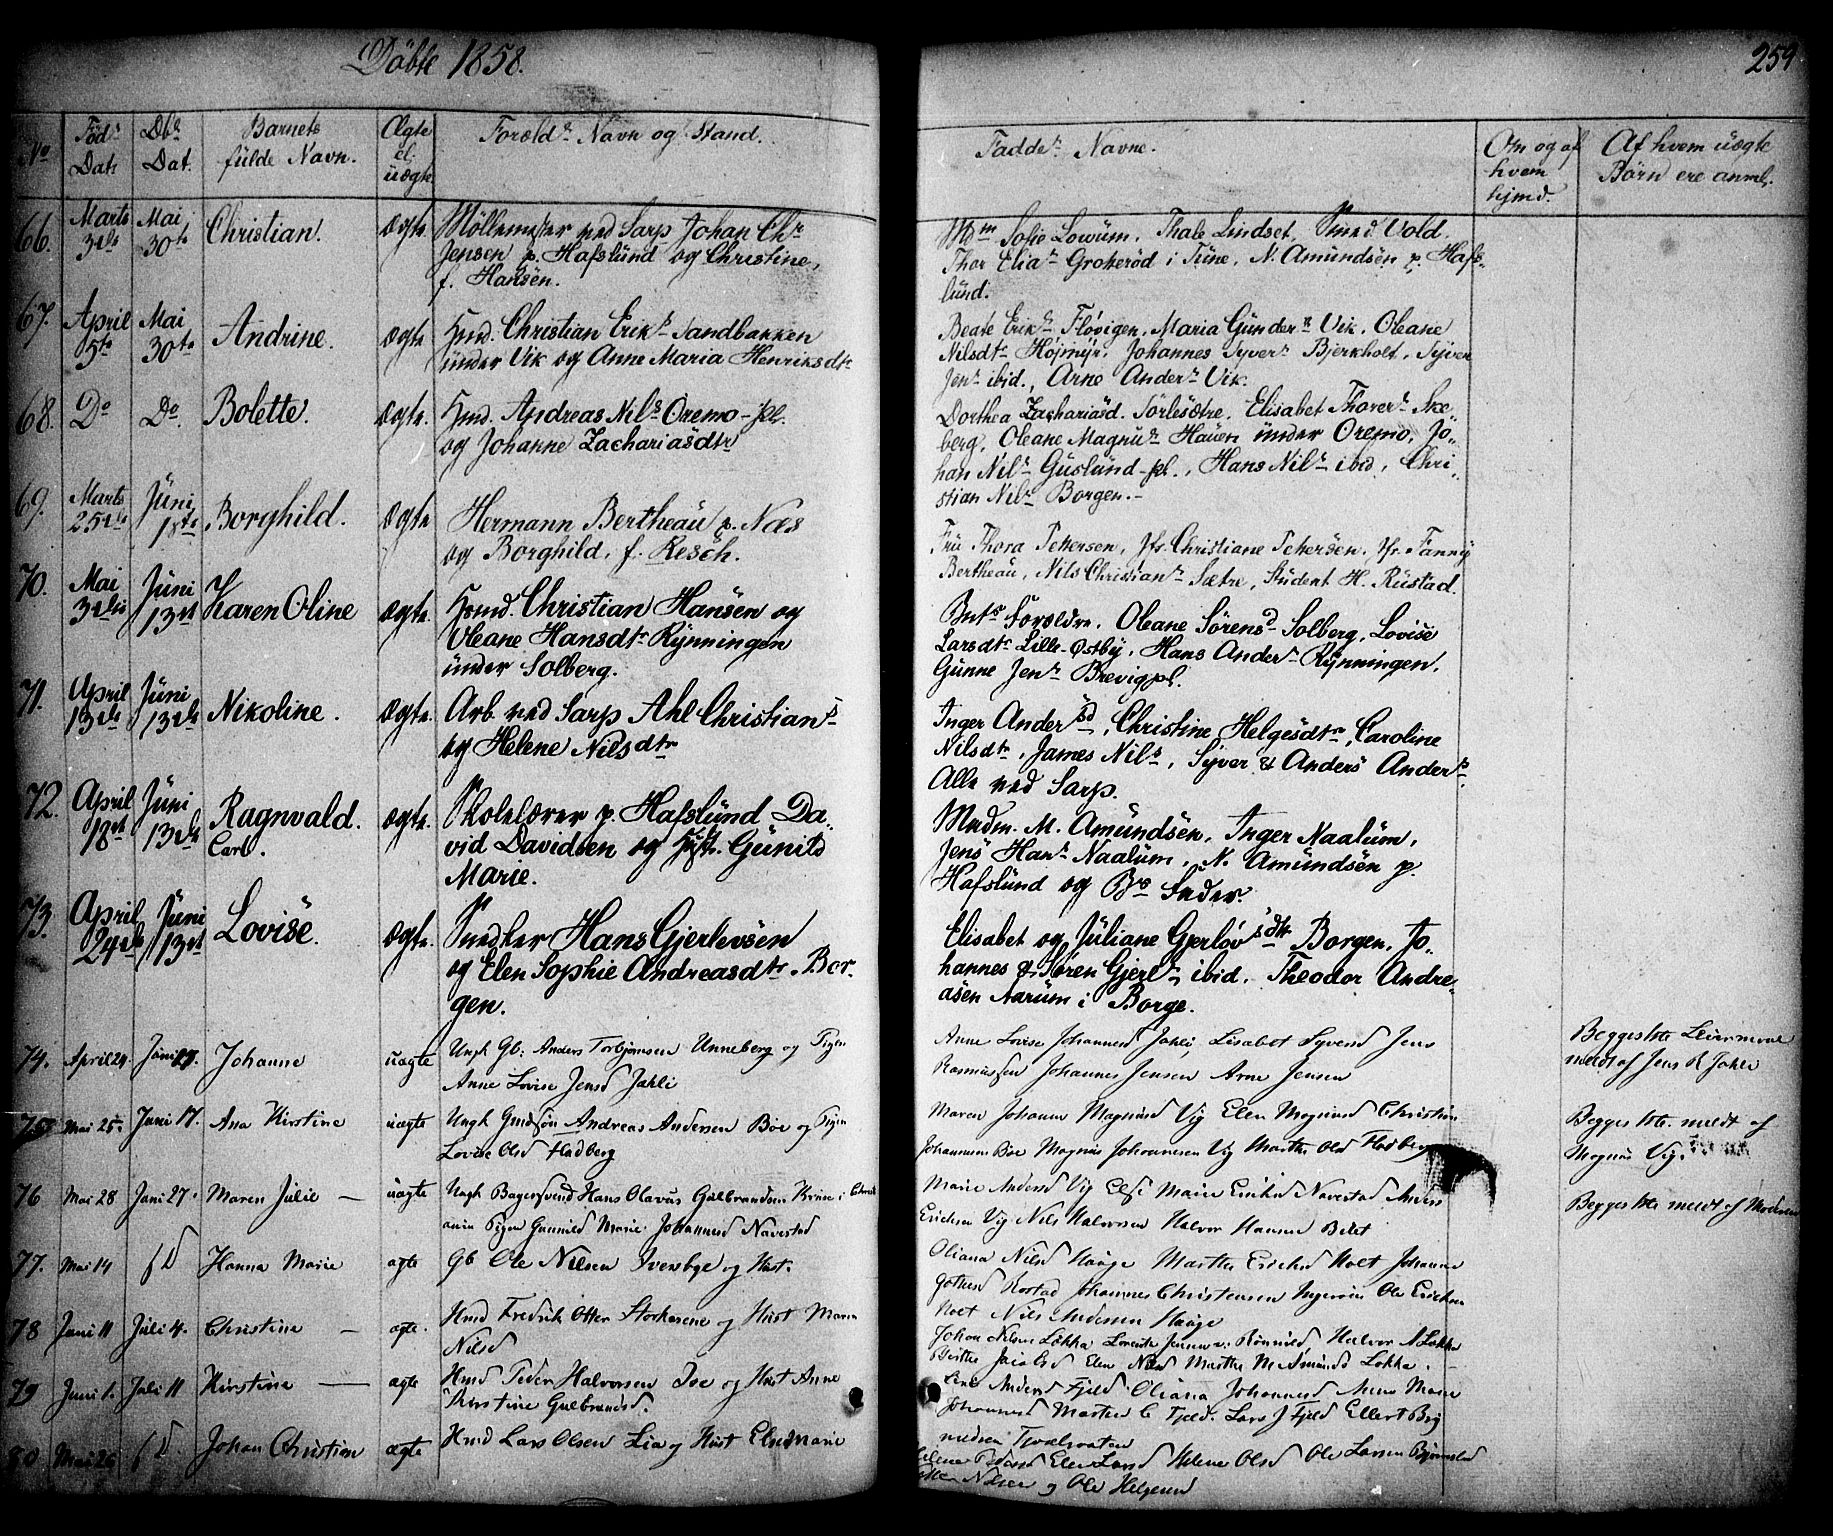 Döbte 1858.
259
No
Föds Dat.
Dbs Dat.
Barnets fulde Navn.
Ægte el. uægte
Foræld.s Navn og Stand.
Fadd.s Navne.
Om og af hvem hjmd.
Af hvem uægte Börn ere anml.
66. Marts 3die Mai 30te Christian. Ægte Möllemester ved Sarp Johan Chr.
Jensen p. Hafslund og Christine,
f. Hansen.
Mdm Sofie Lowum, Thale Lindset, Smed Vold,
Thor Elias Grokeröd i Tune, N. Amundsen p. Hafs-
lund.
67. April 5te Mai 30te Andrine. ægte Hmd. Christian Eriks. Sandbakken
under Vik og Anne Maria Henriksdtr
Beate Eriksd. Flövigen, Maria Gunders. Vik, Oleane
Nilsdtr Höjmyr, Johannes Syvers. Bjerkholt, Syver
Jens. ibid., Arne Anders. Vik.
68. Do Do. Bolette. Ægte. Hmd. Andreas Nils. Oremo-pl.
og Johanne Zachariasdtr
Dorthea Zachariasd. Torlesætre, Elisabet Thorers. Ske-
berg, Oleane Magnus. Hauen under Oremo, Jo-
han Nils. Guslund-pl., Hans Nils. ibid, Chri-
stian Nils. Borgen.-
69. Marts 25de Juni 1ste Borghild. Ægte Hermann Bertheau p. Næs
og Borghild, f. Resch.
Fru Thora Petersen, Jfr. Christiane Petersen, Jfr. Fanny
Bertheau, Nils Christians. Sætre, Student H. Rustad.
70. Mai 3die Juni 13de Karen Oline Ægte. Hmd. Christian Hansen og
Oleane Hansdtr Rynningen
under Solberg.
Bnts Forældre, Oleane Sörensd. Solberg, Lovise
Larsdtr Lille-Ostby, Hans Anders. Rynningen,
Gunne Jens. Brevigpl.
71. April 13de Juni 13de Nikoline. Ægte. Arb. ved Sarp Ahl Christians.
og Helene Nilsdtr
Inger Andersd, Christine Helgesdtr, Caroline
Nilsdtr, James Nils., Syver & Anders Anders.
Alle ved Sarp.
72. April 18de Juni 13de Ragnvald. Carl. ægte. Skolelærer p. Hafslund Da-
vid Davidsen og Hustr. Gunild
Marie.
Madm. M. Amundsen, Inger Naalum,
Jens Hans. Naalum, N. Amundsen p.
Hafslund og Bs Fader.
73. April 24de Juni 13de Lovise. Ægte. Smedker Hans Gjerlevsen
og Elen Sophie Andreasdtr. Bor-
gen.
Elisabet og Juliane Gjerlövsdtr Borgen, Jo-
hannes & Sören Gjerl. ibid. Theodor Andre-
asen Aarum i Borge.
74. April 24. Juni 17. Johanne uægte Ungk Gb: Anders Torbjörnsen Unneberg og Pigen
Anne Lovise Jensd Jahli
Anne Lovise Johannesd Jahli, Lisabet Syversd Jens
Rasmussen Johannes Jensen Arne Jensen
Begges 1ste Leiermaal
meldt af Jens R Jahli
75 Mai 25. Juni 17. Ana Kirstine uægte Ungk Gmdsön Andreas Andersen Böe og Pigen
Lovise Olsd Fladberg
Maren Johanne Magnusd Vig Elen Magnusd Christian
Johannesen Böe Magnus Johannesen Vig Marthe Olsd Fladberg
Begges 1ste. meldt af
Magnus Vig.
76 Mai 28 Juni 27. Maren Julie — uægte Ungk Bagersvend Hans Olavus Gulbrandsen Krise i Christi
ania Pigen Gunnild Marie Johannesd Navestad
Marie Andersd Vig Else Marie Eriksd Navestad Anders
Erichsen Vig Nils Halvorsen Halvor Hansen Bilet
Begges 1ste meldt af Moderen
77. Mai 14 fD Hanna Marie ægte Gb Ole Nilsen Iversbye og Hust.
Oliana Nilsd Hauge Marthe Erichsd Holt Johanne
Rostad Johannes Christensen Ingeroin Ole Erichsen
Holt Nils Andersen Hauge
78 Juni 11 Juli 4. Christine — ægte. Hmd Fredrik Otter Storkasene og Hust Maren
Nilsd
Johan Nilsen Løkka Jensen Rönnild, Halvor N Løkka
Berthe Jacobsd Elen Nilsd Marthe M Amundsd Løkka.
79 Juni 1. Juli 11 Kirstine — ægte Hmd Peder Halvorsen Ise og Hust Anne
Kirstine Gulbrandsd.
Line Andersd Fjeld Oliana Johannesd Anne Marie
Johannesd Marthe C Fjeld. Lars J Fjeld Ellert
80 Mai 26 fD. Johan Christian ægte Hmd Lars Olsen Lia og Hust Else Marie
Helene Pedersd Elen Larsd Helene Olsd Ole Larsen
Nilsen og Ole Helgesen